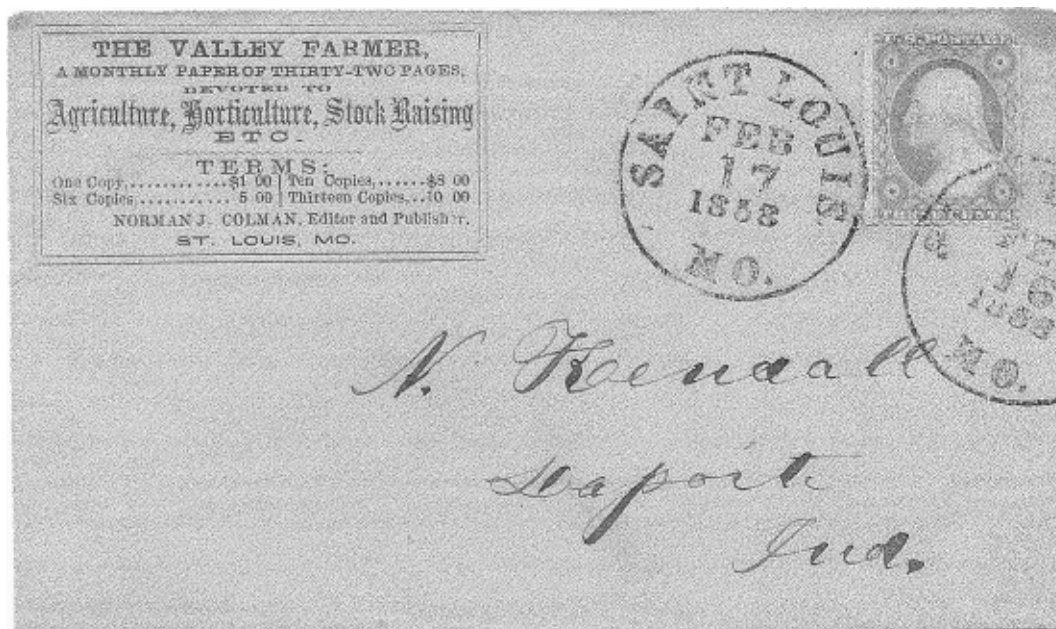 THE VALLEY FARMER,
A MONTHLY PAPER OF THIRTY-TWO PAGES,
DEVOTED TO
Agriculture, Horticulture, Stock Raising
ETC.
TERMS:
One Copy,............$1 00 | Ten Copies,......$8 00
Six Copies,........... 5 00 | Thirteen Copies,..10 00
NORMAN J. COLMAN, Editor and Publisher.
ST. LOUIS, MO.
SAINT LOUIS
FEB
17
1858
MO.
1858
MO.
N. Kendall
Laporte
Ind.